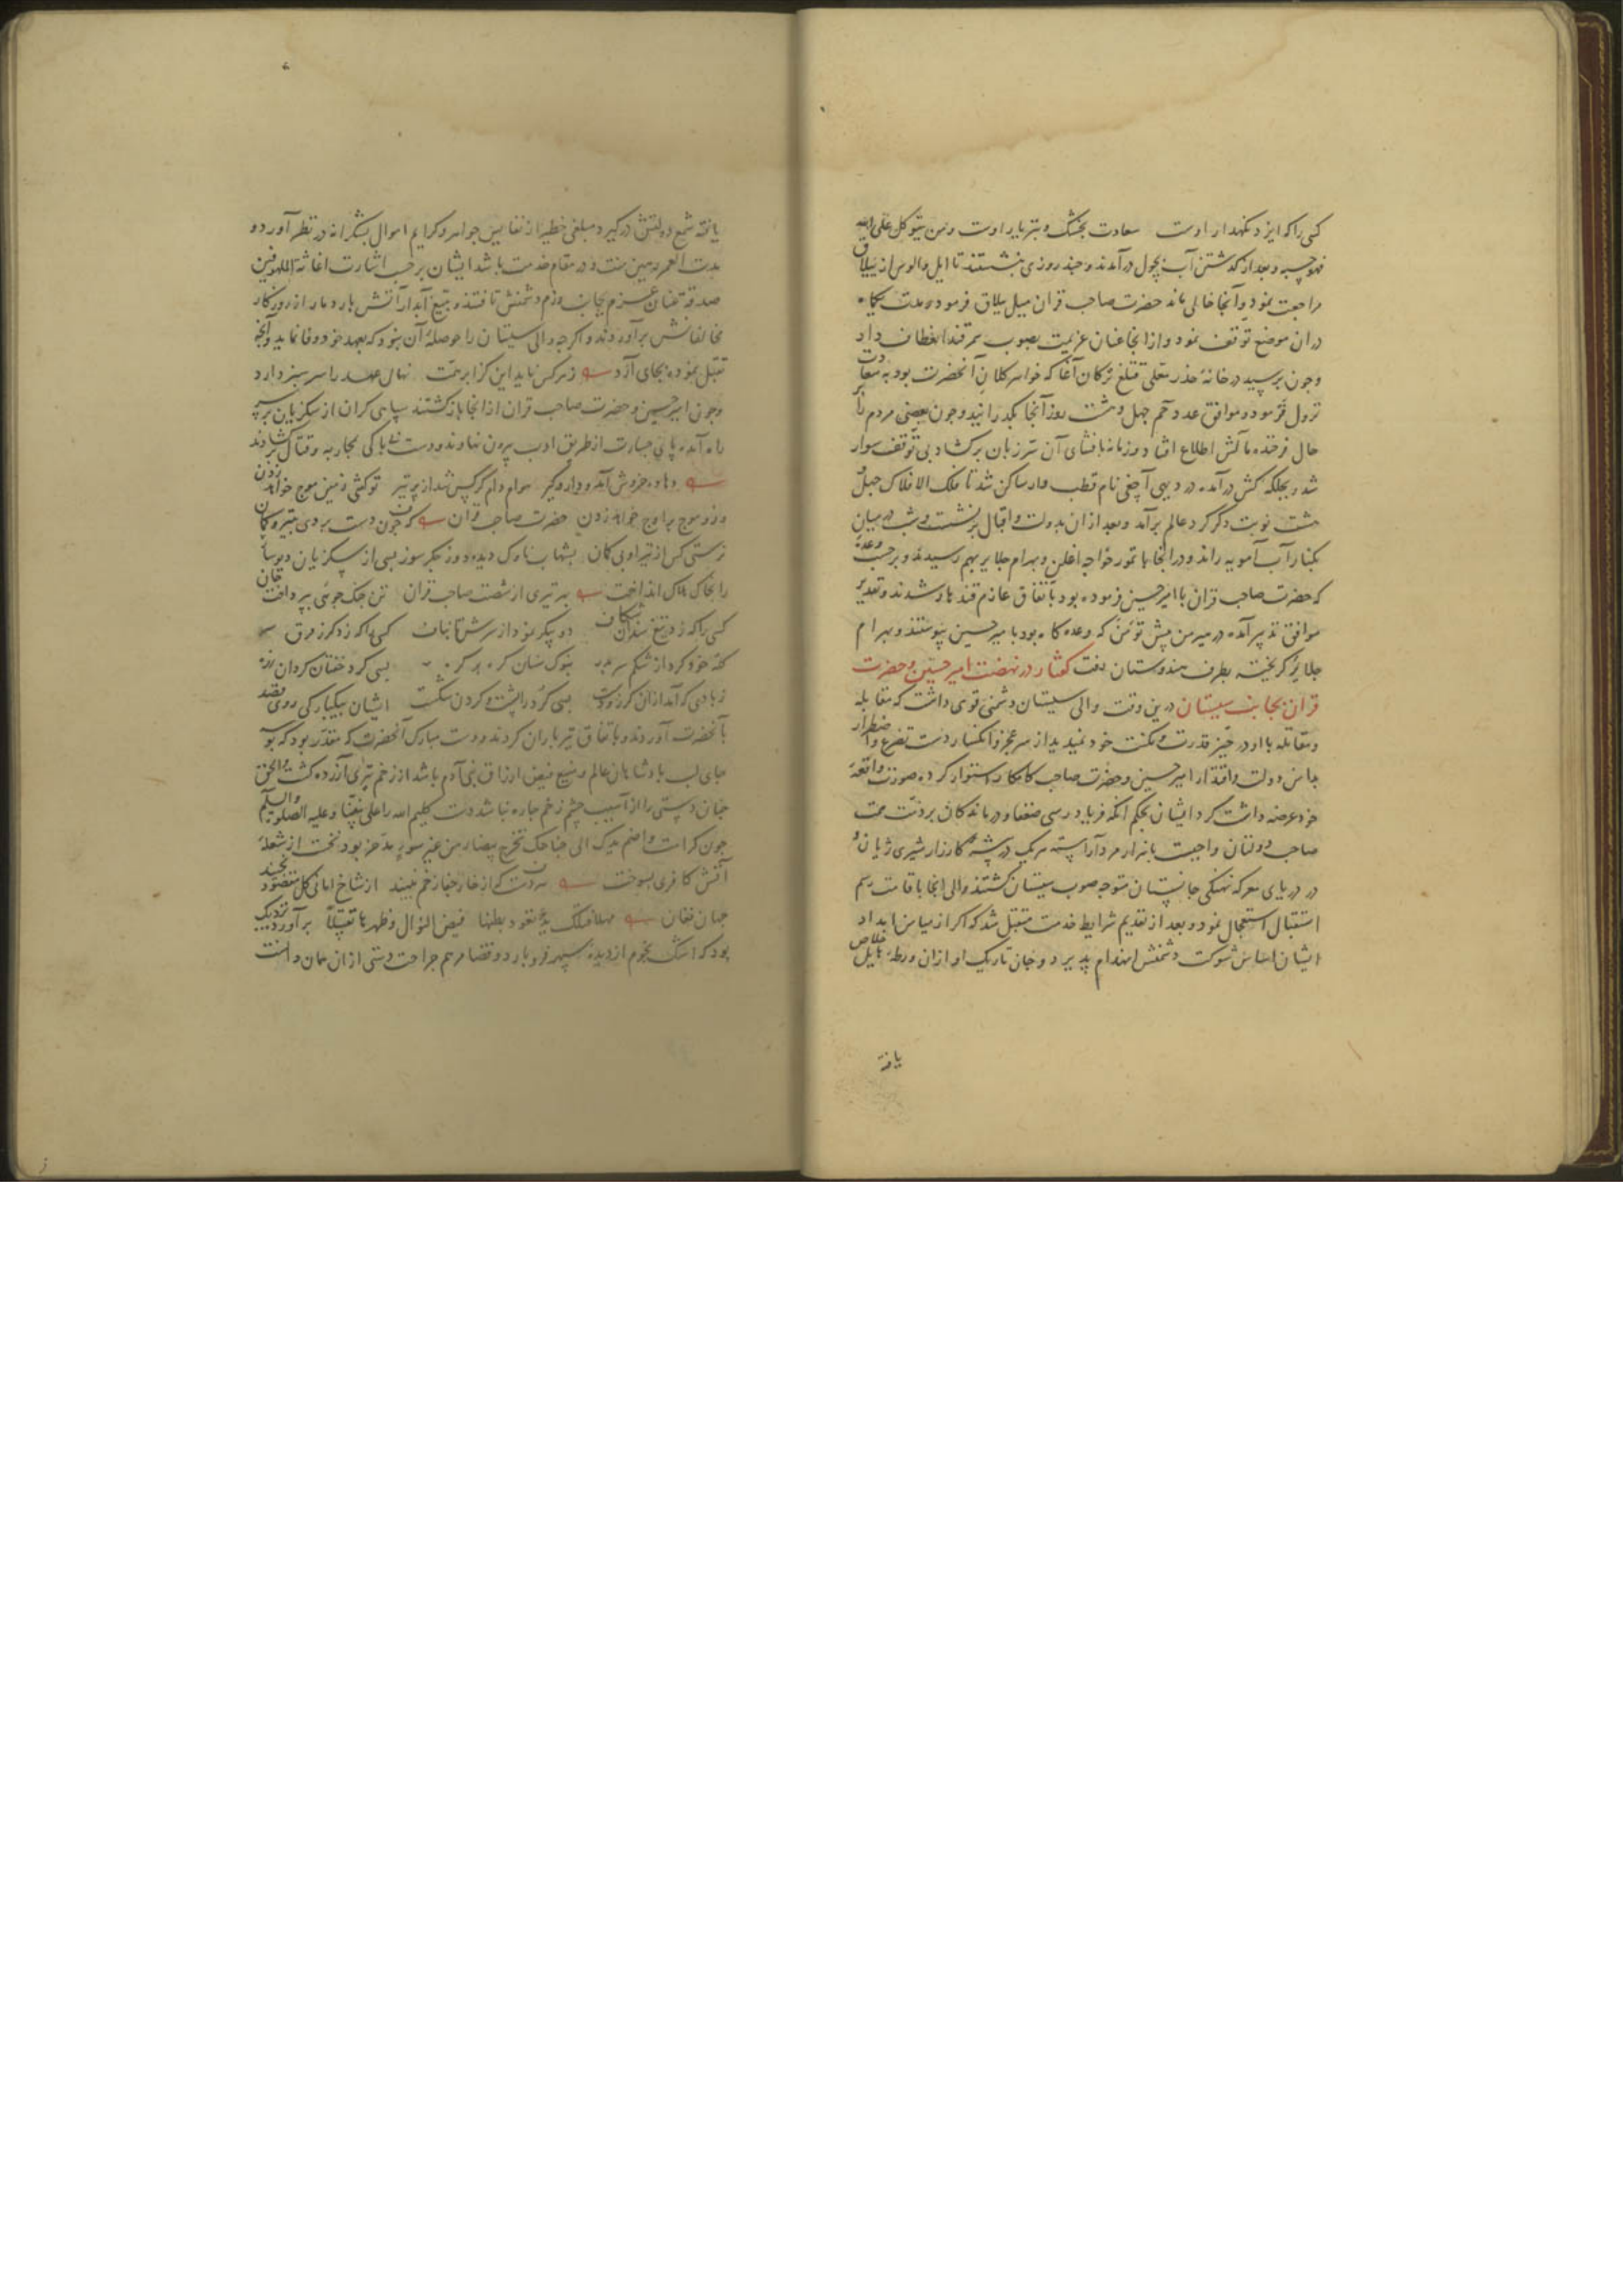 کسی را که ایزد نگهدار اوست سعادت بجنگ و بتر یار اوست ومن یتوکل علی الله
فهو حسبه و بعد از گذشتن آب بچول درآمدند و چند روزی بنشستند تا ایل و الوس از ییلاق
مراجعت نمود و آنجا خالی ماند حضرت صاحب قران میل ییلاق فرمود و مدت یکماه
در ان موضع توقف نمود و از انجا عنان عزیمت بصوب سمرقند انعطاف داد
و چون برسید در خانهٔ خدر معلی قتلغ ترکان آغا که خواهر کلان آنحضرت بود به سعادت
نزول فرمود و موافق عدد حم چهل و هشت روز آنجا بگذرانید و چون بعضی مردم را بر
حال فرخنده مآلش اطلاع افتاد و زمانه بافشای آن سر زبان برگشاد بی توقف سوار
شد و بجلکه کش درآمده در دیهی آچغی نام قطب وار ساکن شد تا فلک الافلاک چهل و
هشت نوبت دگر گرد عالم برآمد و بعد از ان بدولت و اقبال برنشست و شب در میان
بکنار آب آمویه راند و در انجا با تمور خواجه اغلن و بهرام جلایر بهم رسیدند و برحسب وعدهٔ
که حضرت صاحب قران با امیر حسین فرموده بود باتفاق عازم قندهار شدند و تقدیر
موافق تدبیر آمده در میرمن پیش تومن که وعده گاه بود با میر حسین پیوستند و بهرام
جلایر گریخته بطرف هندوستان رفت گفتار در نهضت امیر حسین و حضرت
قران بجانب سیستان درین وقت والی سیستان دشمنی قوی داشت که مقابله
و مقاتله با او در حیز قدرت و مکنت خود نمیدید از سر عجز و انکسار دست تضرع و اضطرار
بدامن دولت و اقتدار امیر حسین و حضرت صاحب کامکار استوار کرده صورت واقعهٔ
خود عرضه داشت کرد ایشان بحکم انکه فریادرسی ضعفا و درماندگان بر ذمت همت
صاحب دولتان واجبست با هزار مرد آراسته هر یک در بیشهٔ کارزار شیری ژیان و
در دریای معرکه نهنگی جانستان متوجه صوب سیستان گشتند والی انجا باقامت رسم
استقبال استعجال نمود و بعد از تقدیم شرایط خدمت متقبل شد که اگر از میامن امداد
ایشان اساس شوکت دشمنش انهدام پذیرد و جان تاریک او ازان ورطهٔ هایل خلاص
یافته
یافته شمع دولتش درگیرد مبلغی خطیر از نفایس جواهر و کرایم اموال بشکرانه در نظر آورد و
مدت العمر رهین منت و در مقام خدمت باشد ایشان برحسب اشارت اغاثة الملهوفین
صدقة عنان عزم بجانب رزم دشمنش تافتند و بتیغ آبدار آتش بار دمار از روزگار
مخالفانش برآوردند و اگرچه والی سیستان را حوصلهٔ آن نبود که بعهد خود وفا نماید و آنچه
تقبل نموده بجای آرد زهرکس نیاید این کز ابر همت نهال عهد را سرسبز دارد
و چون امیر حسین و حضرت صاحب قران از انجا بازگشتند سپاهی گران از سکزیان برسر
راه آمده پای جسارت از طریق ادب بیرون نهاوند و دست بی باکی بمحاربه و قتال برگشادند
دهاده خروش آمد و دار و گیر هوا دام کرکس شد از پر تیر تو گفتی زمین موج خواهد زدن
وزو موج بر اوج خواهد زدن حضرت صاحب قران که چون دست بردی بتیر و کمان
نرستی کس از تیر او بی گمان بشهاب ناوک دیده دوز جگر سوز بسی از سکزیان دیوسار
را بخاک هلاک انداخت بهر تیری از شصت صاحب قران تن جنگجوئی بپرداخت جان
کسی را که زد تیغ سندان شکاف دو پیکر نمود از سرش تا بناف کسی را که زد گرز فرق
کله خود کرد از شکم سر بدر بنوک سنان گره بر گره بسی کرد خفتان گردان زره
ز بادی که آمد ازان گرز پست بسی گرد را پشت و گردن شکست ایشان بیکبارگی روی بقصد
بآنحضرت آوردند و باتفاق تیرباران کردند و دست مبارک آنحضرت که مقدر بود که بوسه
جای لب پادشاهان عالم و منبع فیض ارزاق بنی آدم باشد از زخم تیری آزرده گشت و الحق
چنان دستی را از آسیب چشم زخم چاره نباشد دست کلیم الله را علی نبینا و علیه الصلوة والسلام
چون کرامت واضمم یدک الی جناحک تخرج بیضاء من غیر سوء مدخر بود نخست از شعلهٔ
آتش کافری بسوخت نه دست که از خار جفا زخم نبیند از شاخ امانی گل مقصود نچیند
جهان فغان فیض النوال و ظهرها تقبیلا برآورد نزدیک
بود که اشک نجوم از دیدهٔ سپهر فرو بارد و قضا مرهم جراحت دستی ازان همان دانست